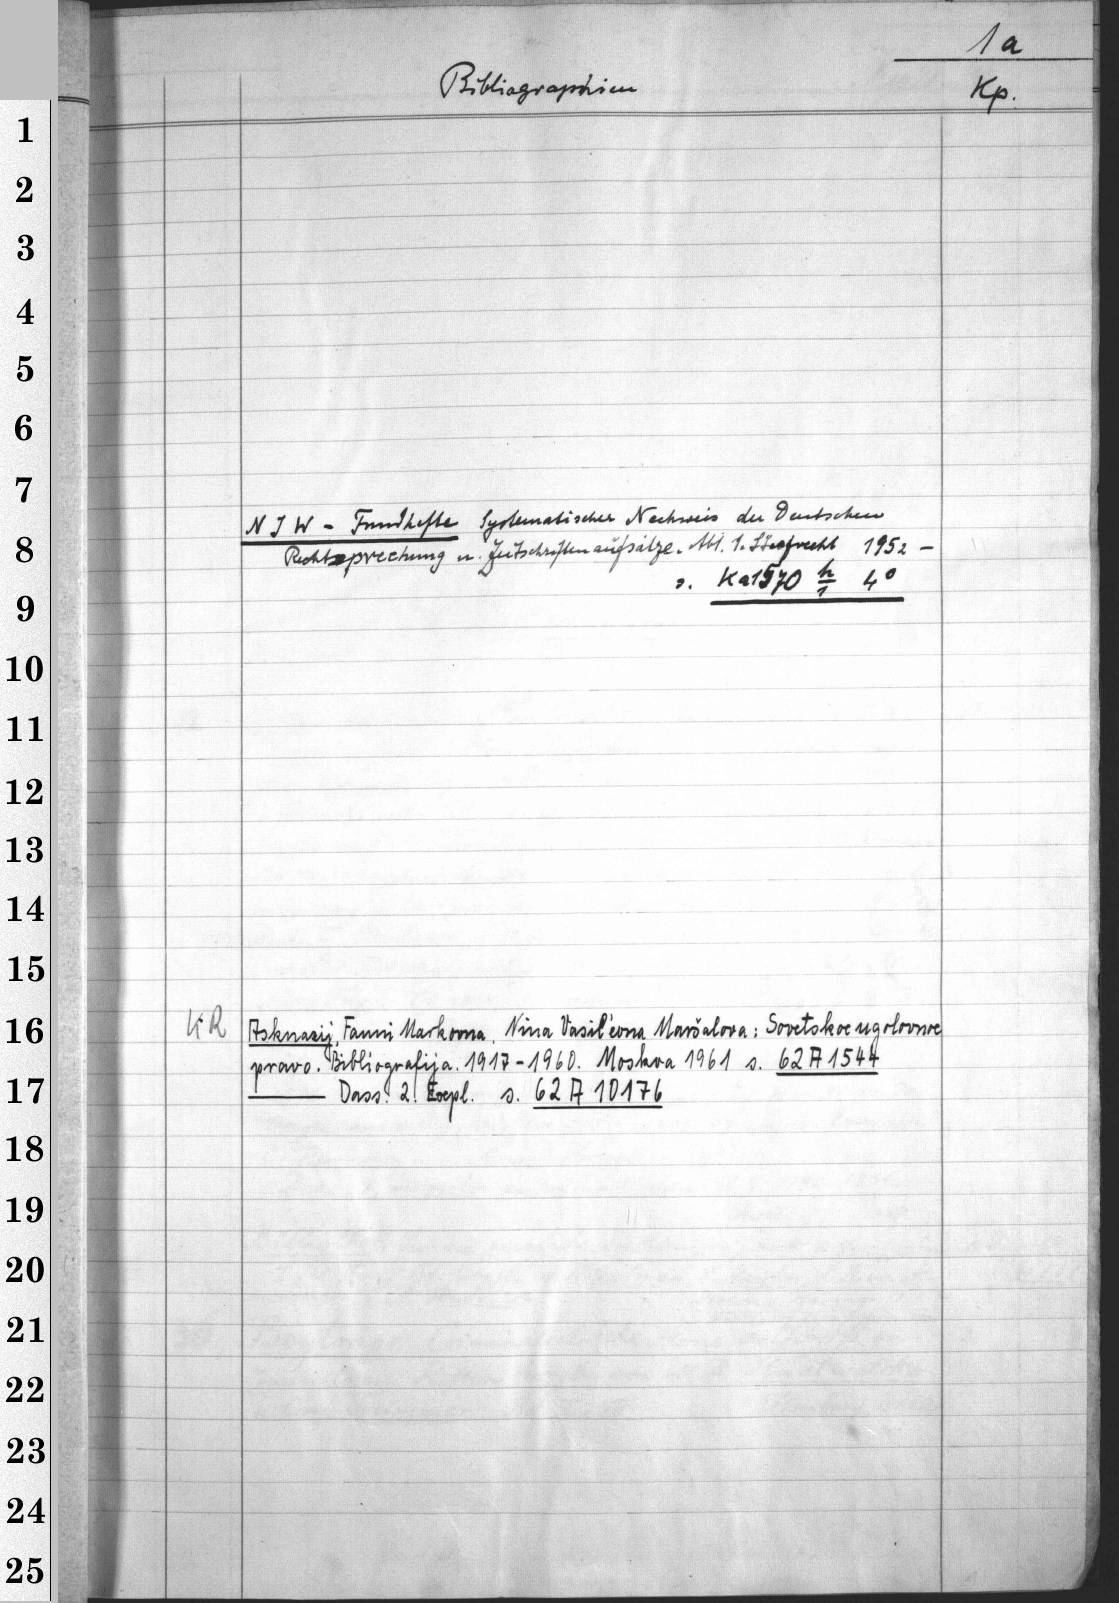 1a
Bibliographien
Kp.
1
2
3
4
5
6
7
NJW - Fundhefte Systematischer Nachweis der Deutschen
8
Rechtsprechung u. Zeitschriftenaufsätze. Abt. 1. Strafrecht 1952 -
s. Ka1570 h/1 4°
9
10
11
12
13
14
15
16
KR Asknazij, Fanni Markovna, Nina Vasil'evna Maršalova: Sovetskoe ugolovnoe
pravo. Bibliografija. 1917-1960. Moskva 1961 s. 62 A 1544
17
Dass. 2. Expl. s. 62 A 10176
18
19
20
21
22
23
24
25